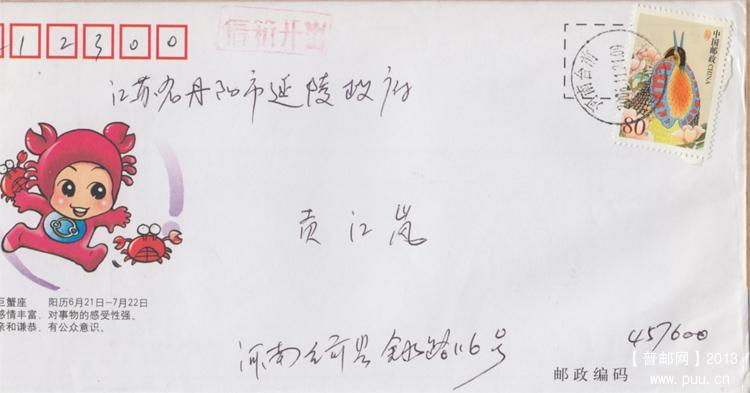 12300
信箱开出
中国邮政 CHINA
80
河南台前
江苏省丹阳市延陵政府
贡江岚
巨蟹座 阳历6月21日-7月22日
感情丰富，对事物的感受性强。
亲和谦恭，有公众意识。
河南台前县 路116号
457600
邮政编码
【普邮网】2013
www.puu.cn